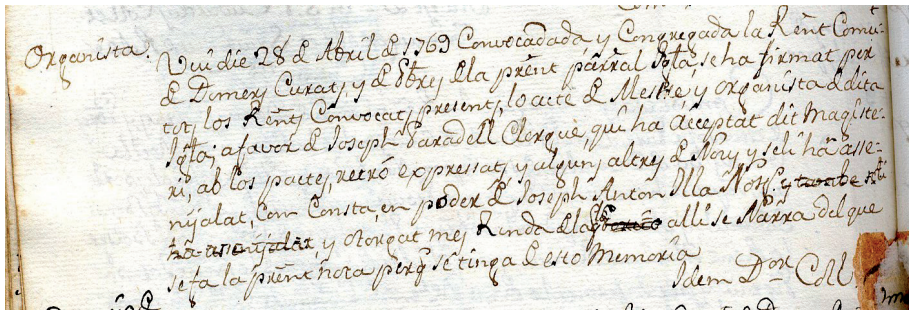 Organista.
Vuii die 28 de Abril de 1769 Convocadada, y Congregada la Rent Comu-
de Domers Curats, y de Pbres de la prent parral Igla, se ha firmat per
tots los Rents Convocats, presents, lo acte de Mestre, y organista de dita
Igla, a favor de Joseph Paradell Clergue, qui ha acceptat dit magiste-
ri, ab los pactes, retro expressats, y alguns altres de Nous y seli ha asse-
nyalat, Com Consta, en poder de Joseph Anton Illa Nott. y tambe
ha assenyalat, y otorgat mes Renda de la alli se Narra del que
se fa la prent nota perq se tinga de esto Memoria
Idem Dor Coll